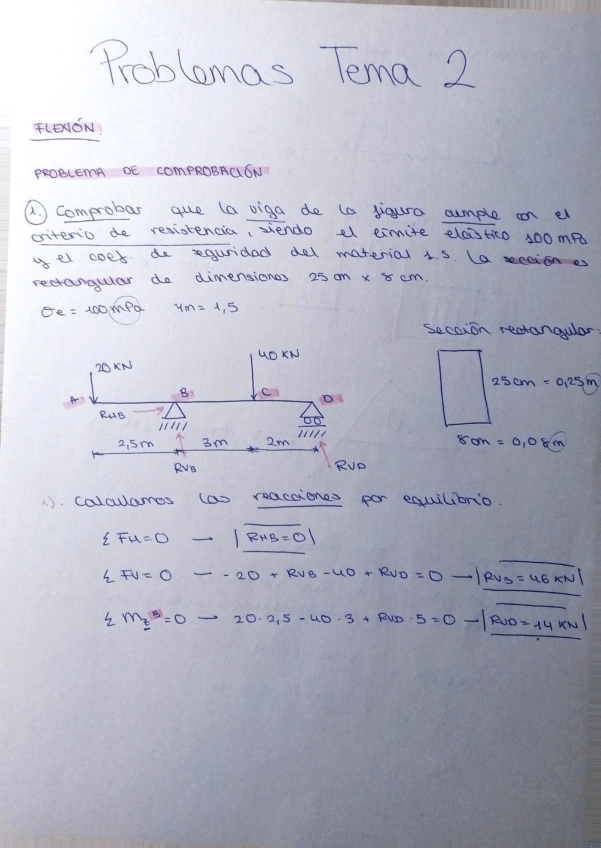 Problemas Tema 2
FLEXIÓN.
PROBLEMA DE COMPROBACIÓN
1. Comprobar que la viga de la figura cumple con el
criterio de resistencia, siendo el límite elástico 100 mPa
y el coef. de seguridad del material 1.5. La sección es
rectangular de dimensiones 25 cm x 8 cm.
σe = 100 mPa γm = 1,5
Sección rectangular:
20 KN
40 KN
A B C D
RHB
25 cm = 0,25 m
2,5 m 3m 2m
8 cm = 0,08 m
RVB RVD
1). Calculamos las reacciones por equilibrio.
Σ FH = 0 → RHB = 0
Σ FV = 0 → -20 + RVB - 40 + RVD = 0 → RVB = 46 KN
Σ Mz^B = 0 → 20 · 2,5 - 40 · 3 + RVD · 5 = 0 → RVD = 14 KN